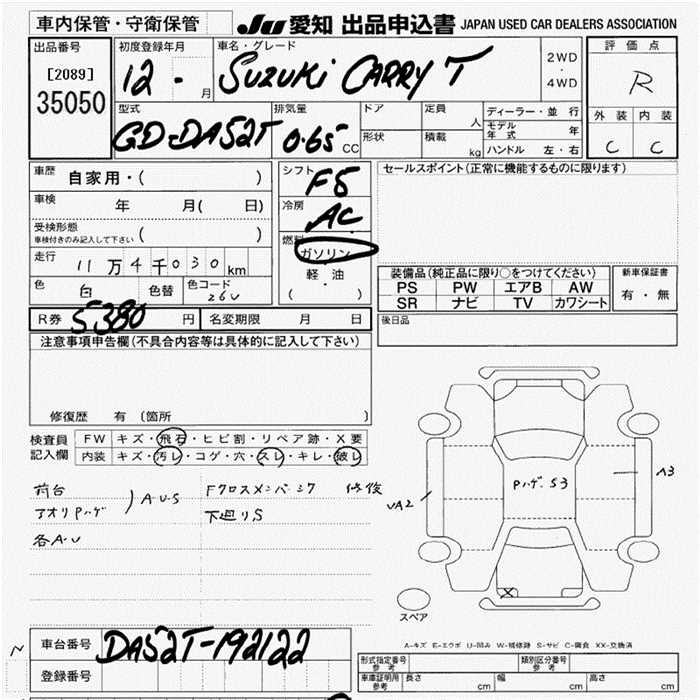 車内保管・守衛保管
JU 愛知 出品申込書 JAPAN USED CAR DEALERS ASSOCIATION
出品番号 初度登録年月 車名・グレード 評価点
[2089] 12 - 月 SUZUKI CARRY T 2WD ・ 4WD R
35050
型式 排気量 ドア 定員 人 ディーラー・並 行 外装 内装
GD-DA52T 0.65 CC 形状 積載 kg モデル年式 年 C C
ハンドル 左・右
車歴 自家用・( ) シフト F5 セールスポイント(正常に機能するものに限ります)
車検 年 月( 日) 冷房 AC
受検形態
車検付きのみ記入して下さい ( ) 燃料 ガソリン
走行 11万4千030km 軽・油 装備品(純正品に限り○をつけてください) 新車保証書
色 白 色替 色コード 26U ( ・ ) PS PW エアB AW 有・無
SR ナビ TV カワシート
R券 5380 円 名変期限 月 日 後日品
注意事項申告欄(不具合内容等は具体的に記入して下さい)
修復歴 有 (箇所 )
検査員 FW キズ・飛石・ヒビ割・リペア跡・X要
記入欄 内装 キズ・汚レ・コゲ・穴・スレ・キレ・破レ
荷台 AUS Fクロスメンバーシワ 修復
アオリPハゲ 下廻りS
各A・U
Pハゲ.S3
A3
UA2
X
スペア
A-キズ E-エクボ U-凹み W-補修跡 S-サビ C-腐食 XX-交換済
車台番号 DA52T-192122
登録番号
型式指定番号 参考 類別区分番号 参考
車庫証明用 参考 長さ cm 幅 cm 高さ cm
N